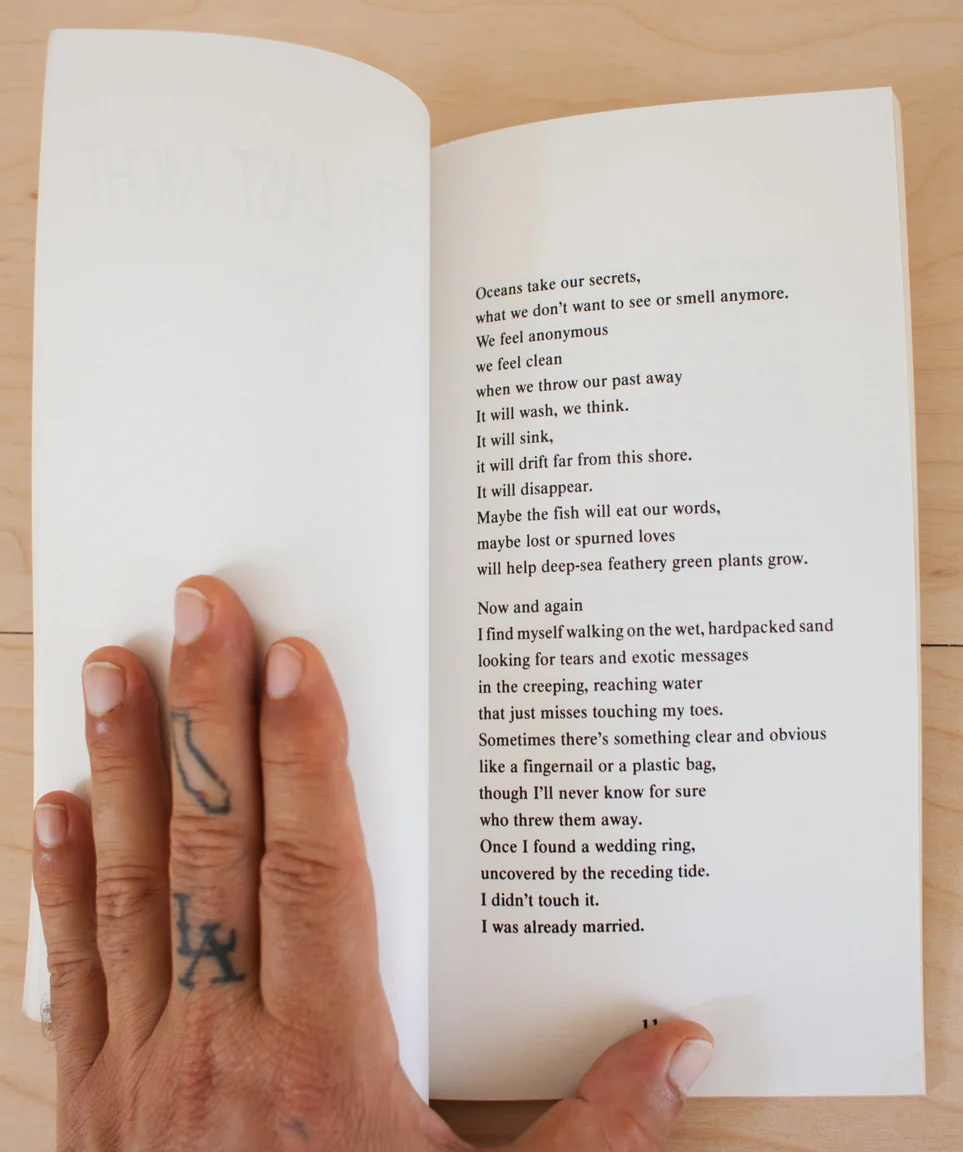 LAST NIGHT
Oceans take our secrets,
what we don't want to see or smell anymore.
We feel anonymous
we feel clean
when we throw our past away
It will wash, we think.
It will sink,
it will drift far from this shore.
It will disappear.
Maybe the fish will eat our words,
maybe lost or spurned loves
will help deep-sea feathery green plants grow.
Now and again
I find myself walking on the wet, hardpacked sand
looking for tears and exotic messages
in the creeping, reaching water
that just misses touching my toes.
Sometimes there's something clear and obvious
like a fingernail or a plastic bag,
though I'll never know for sure
who threw them away.
Once I found a wedding ring,
uncovered by the receding tide.
I didn't touch it.
I was already married.
LA